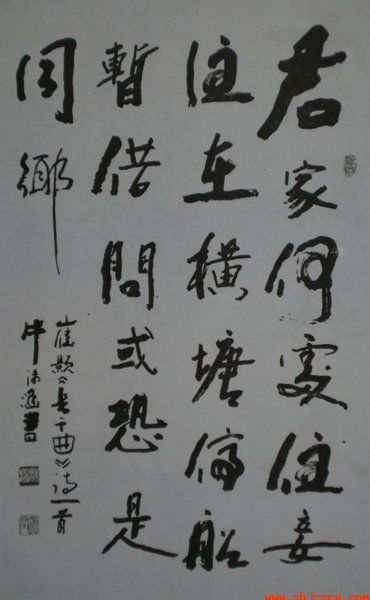 君家何處住妾
住在橫塘停船
暫借問或恐是
同鄉
崔颢《長干曲》诗一首